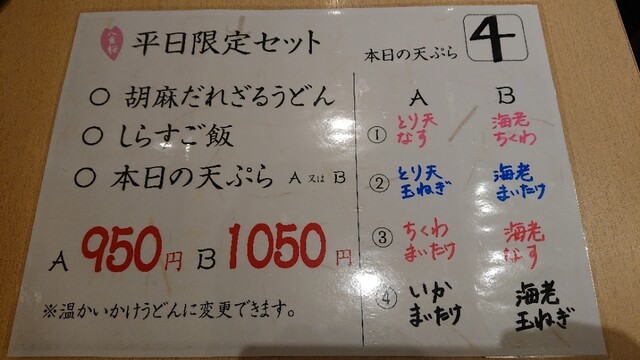 平日限定セット
○ 胡麻だれざるうどん
○ しらすご飯
○ 本日の天ぷら A又はB
A 950円 B 1050円
※温かいかけうどんに変更できます。
本日の天ぷら 4
A B
① とり天 なす 海老 ちくわ
② とり天 玉ねぎ 海老 まいたけ
③ ちくわ まいたけ 海老 なす
④ いか まいたけ 海老 玉ねぎ